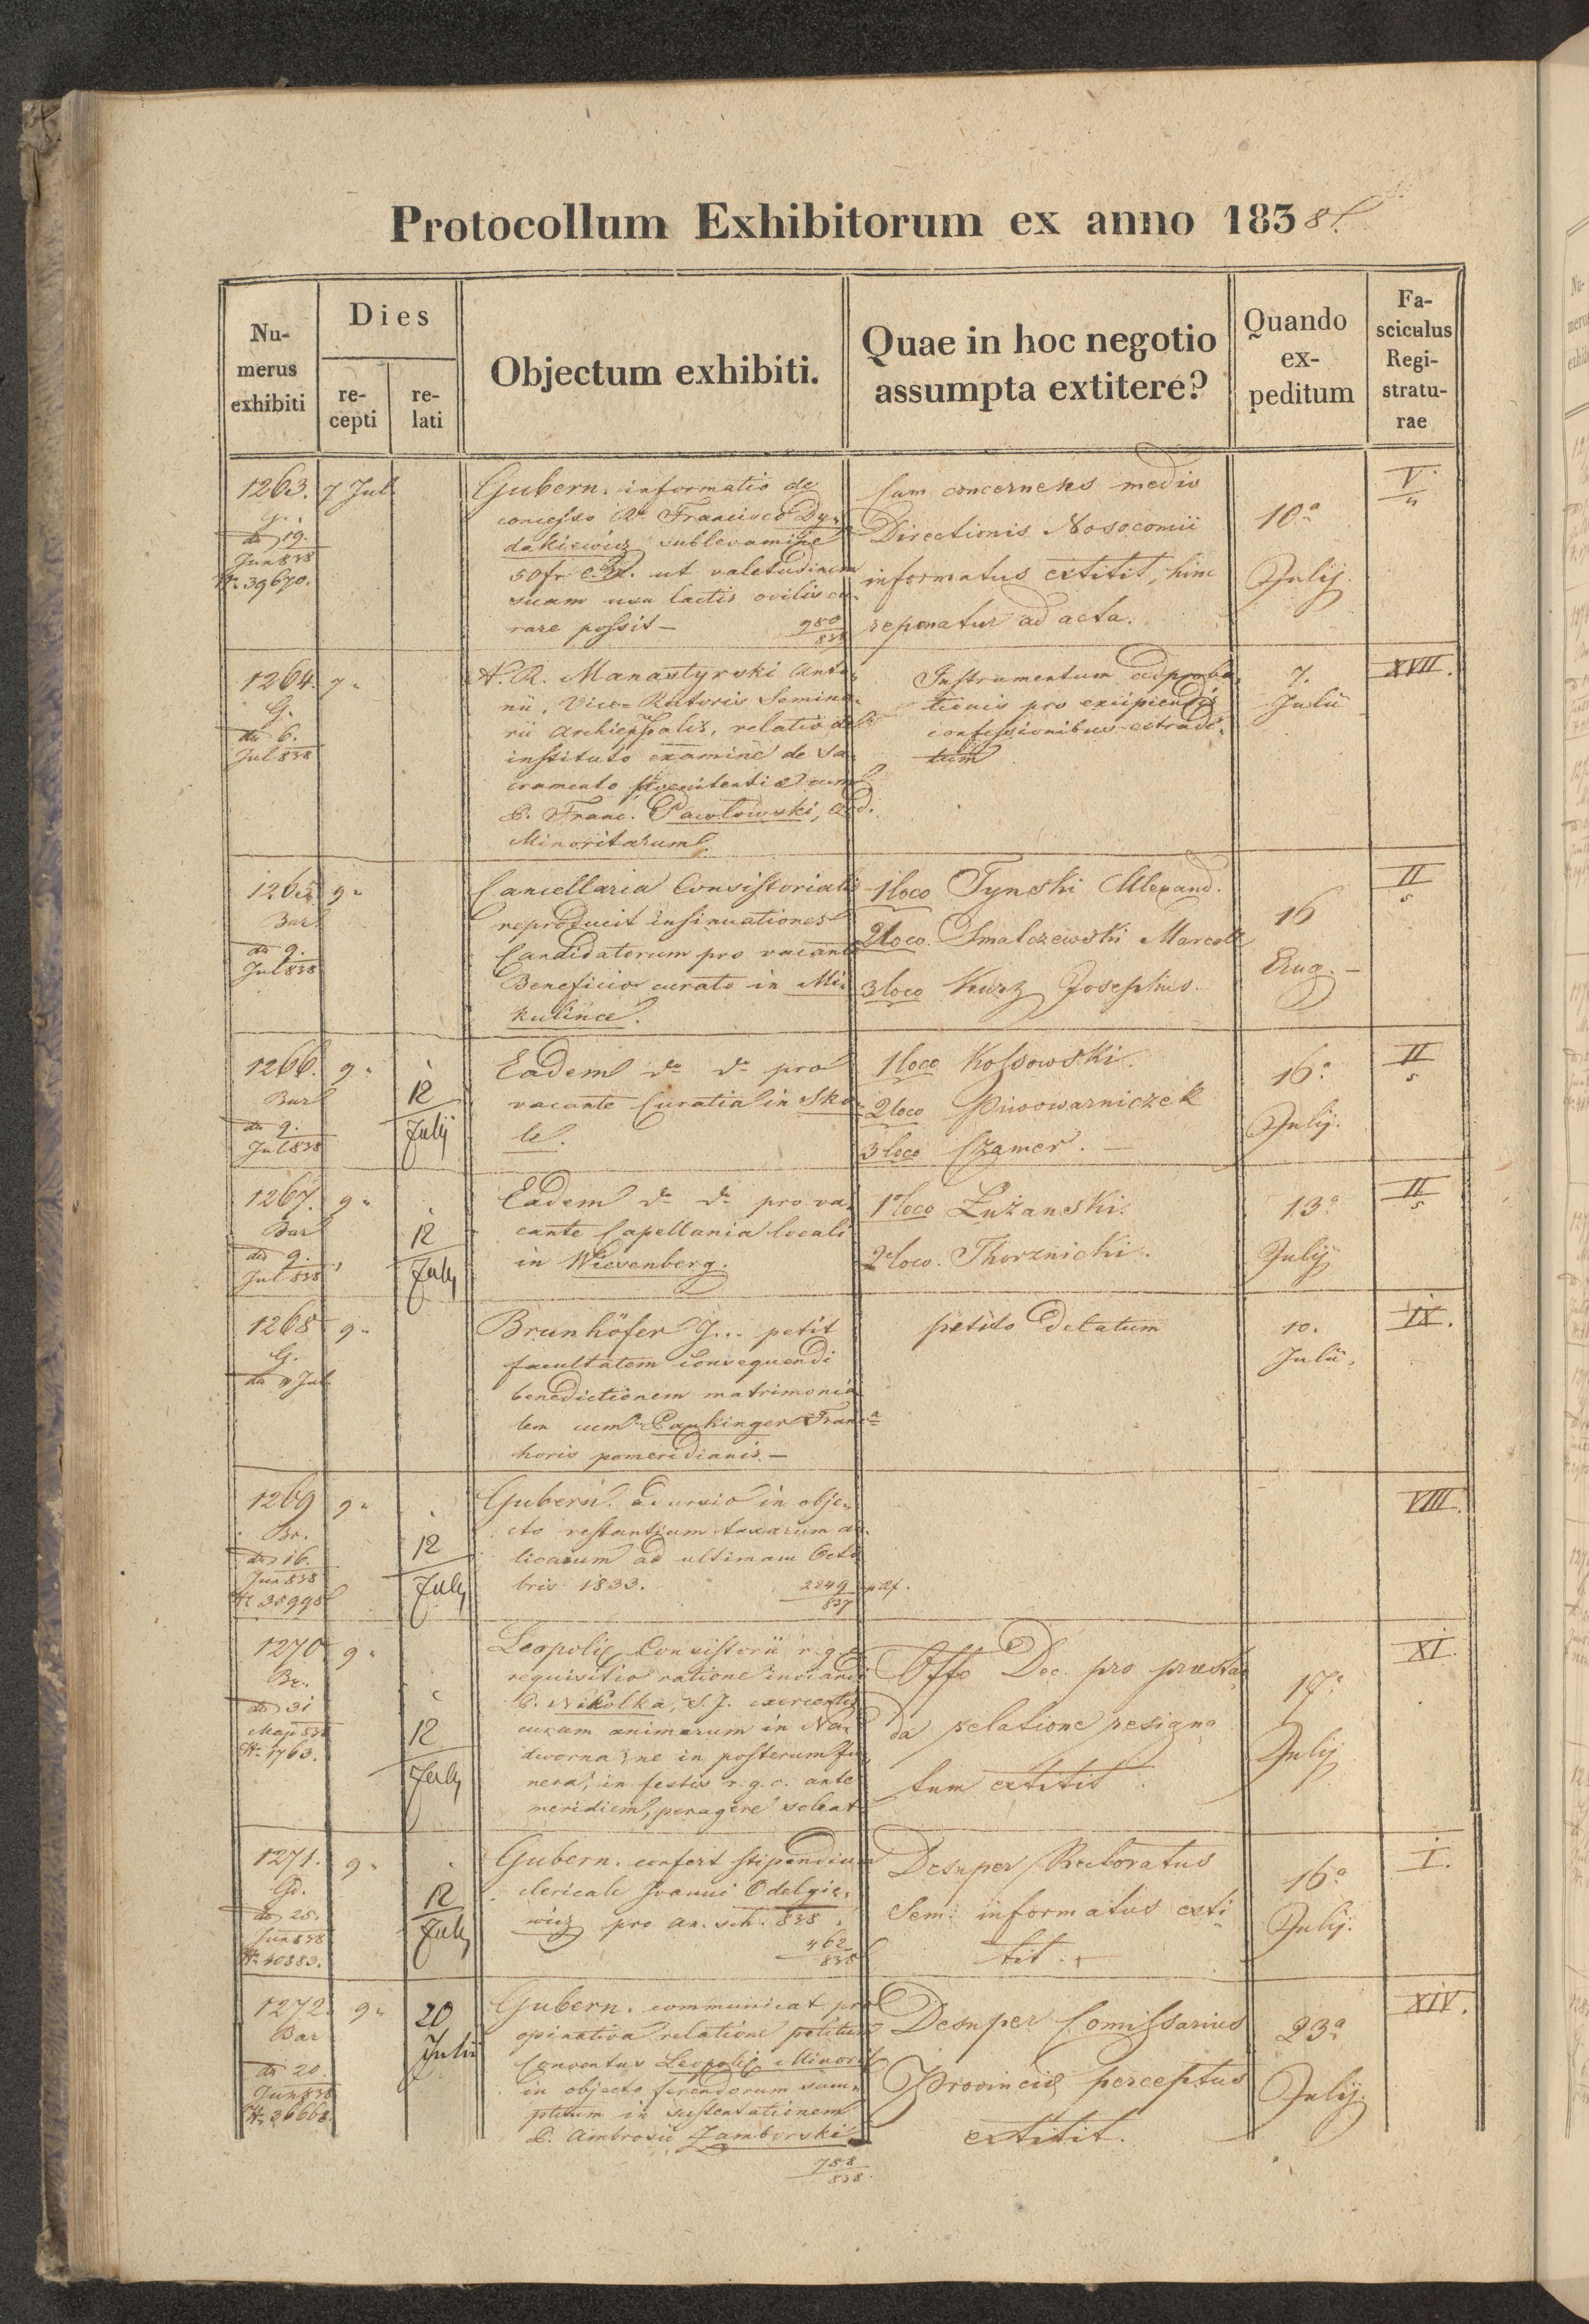 Protocollum Exhibitorum ex anno 1838.
Nu-
merus
exhibiti
Dies
re-
cepti
re-
lati
Objectum exhibiti.
Quae in hoc negotio
assumpta extitere?
Quando
ex-
peditum
Fa-
sciculus
Regi-
stratu-
rae
1263.
G.
do 19.
Jun 838
Nr. 39670.
7 Jul
Gubern. informatio de
concesso Francisco Dy-
dakiewicz sublevamine
50 fr. ut valetudinem
suam usu lactis ovilis cu-
rare possit —
980
838
Cum concernens medio
Directionis Nosocomii
informatus extitit, hinc
reponatur ad acta.
10a
Julij.
V
1264.
G.
do 6.
Jul 838
7 "
A. R. Manastyrski Anto-
nii, Vice-Rectoris Semina-
rii Archieppalis, relatio de
instituto examine de Sa-
cramento poenitentiae cum
P. Franc. Pawlowski, Ord.
Minoritarum.
Instrumentum adproba-
tionis pro excipiendis
confessionibus extradi-
tum
7.
Julii
XVII.
1265
Bar
do 9.
Jul 838
9 "
Cancellaria Consistorialis
reproducit insinuationes
Candidatorum pro vacante
Beneficio curato in Mi-
kulince.
1 loco Tynski Alexand.
2 loco. Smalczewski Marcell
3 loco Kurz Josephus.
16
Aug. —
II
5
1266.
Bar
do 9.
Jul 838
9 "
12
July
Eadem do do pro
vacante Curatia in Sko-
le.
1 loco Kossowski.
2 loco Piwowarniczek
3 loco Czamer. —
16a
Julij.
II
5
1267.
Bar
do 9.
Jul 838
9 "
12
July
Eadem do do pro va-
cante Capellania locali
in Wiesenberg.
1o loco Lużanski.
2o loco. Thorznicki.
13a
Julij
II
5
1268
G.
do Jul
9 "
Brunhöfer J... petit
facultatem consequendi
benedictionem matrimonia-
lem cum Paukinger Franca
horis pomeridianis. —
petito delatum
10.
Julii,
IX.
1269
Br.
do 16.
Jun 838
Nr 38998
9 "
12
July
Gubern. adursio in obje-
cto restantium taxarum au-
licarum ad ultimam Octo
bris 1833.
2249
837
VIII.
1270
Br.
do 31
Maji 838
Nr. 1763.
9 "
12
July
Leopolis Consistorii r. g. c.
requisitio ratione inviandi
P. Nikolka, S. J. exercentis
curam animarum in Na-
dworna, ne in posterum fu-
nera, in festis r. g. c. ante
meridiem, peragere soleat
Offo Dec. pro praestan-
da relatione resigna
tum extitit.
17a
Julij
XI.
1271.
Gd.
do 25.
Jun 838
Nr. 40883.
9 "
12
July
Gubern. confert stipendium
clericale Joanni Odelgie-
wicz pro an. sch. 838.
462
838
Desuper Rectoratus
Sem. informatus exti
tit.
16a
Julij.
I.
1272.
Bar
do 20
Jun 838
Nr. 36668.
9 "
20
Julii
Gubern. communicat pro
opinativa relatione petitum
Conventus Leopolis Minorit
in objecto ferendorum sum-
ptuum in sustentationem
P. Ambrosii Jamborski
788
838.
Desuper Comissarius
Provinciae perceptus
extitit.
23a
Julij.
XIV.